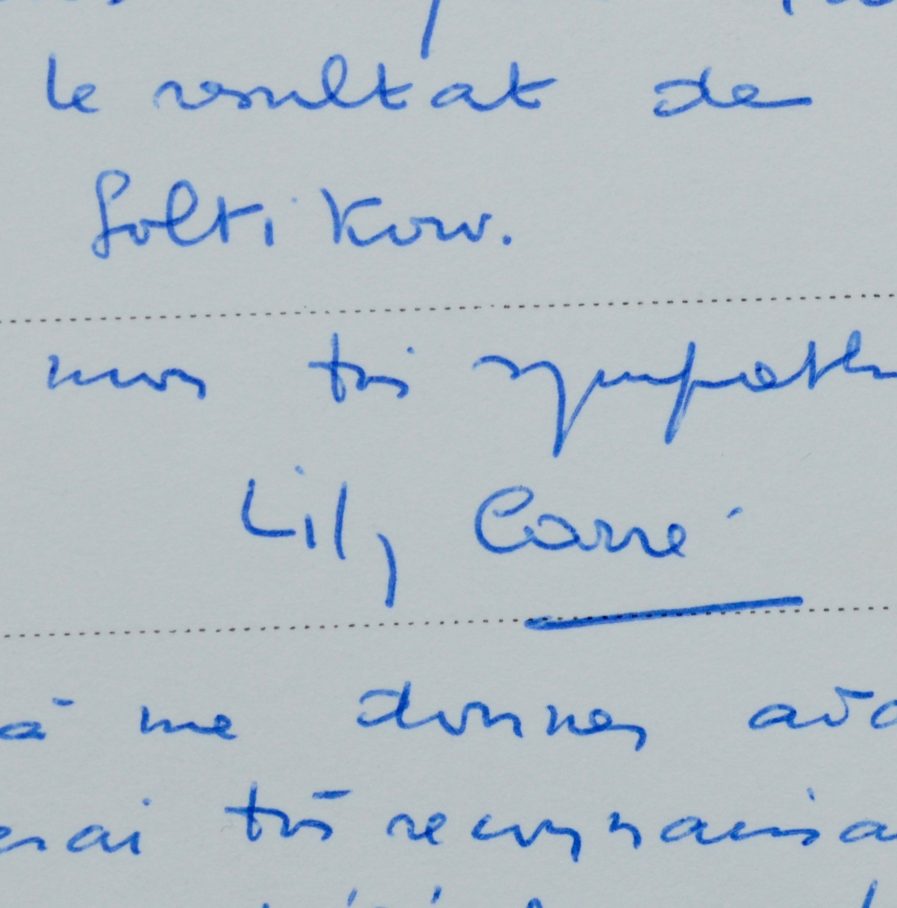 le resultat de
Soltikow.
mon très sympath
Lily Carré
à me donner
erai très reconnaissa